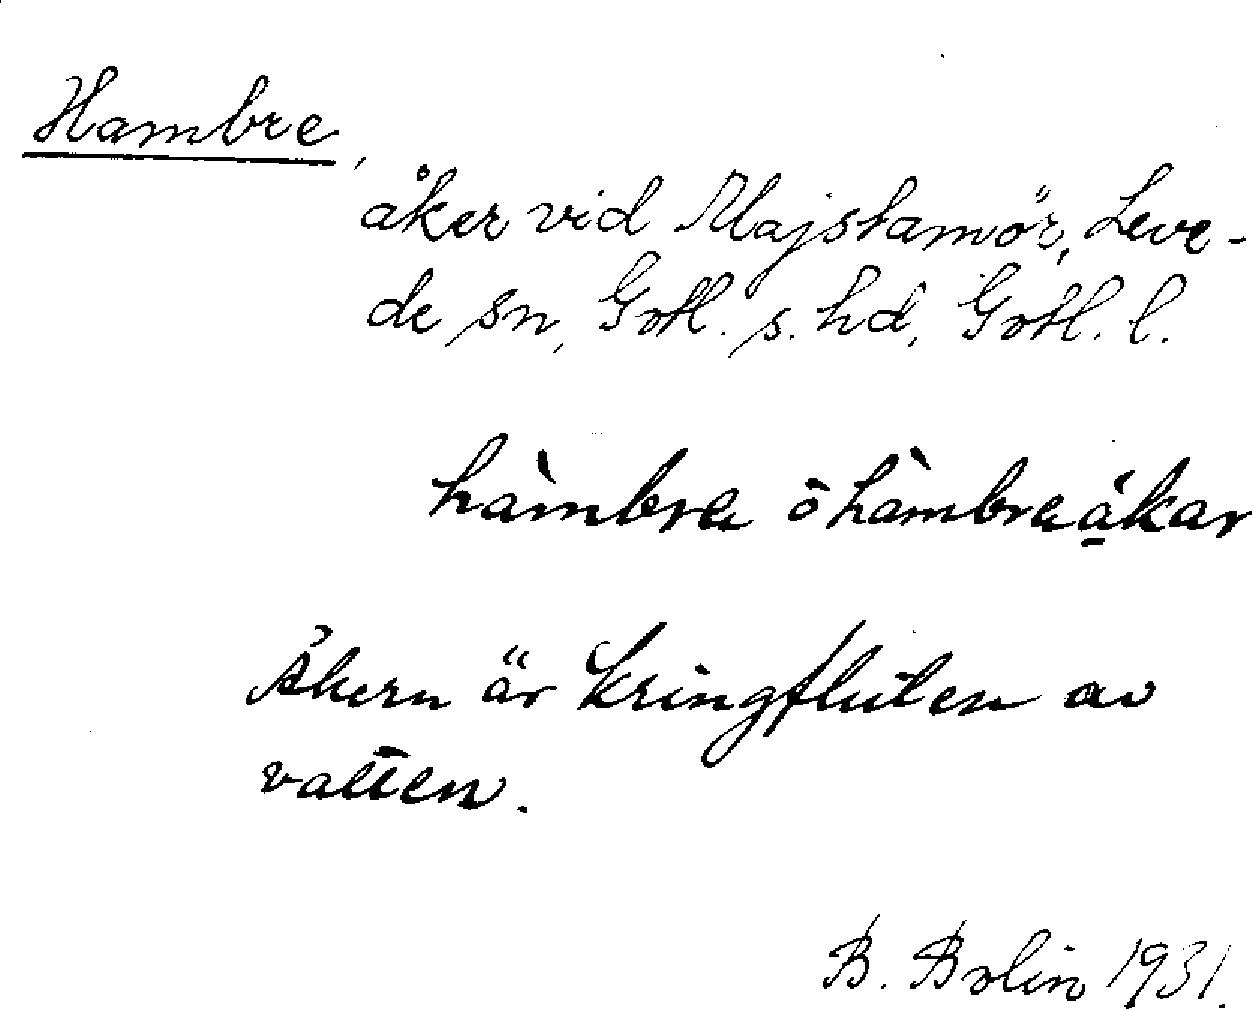 Hambre,
åker vid Majstamör, Leve-
de sn, Gotl. s. hd, Gotl. l.
hàmbrα ō hàmbrαákar
Åkern är kringfluten av
vatten.
B. Bolin 1931.